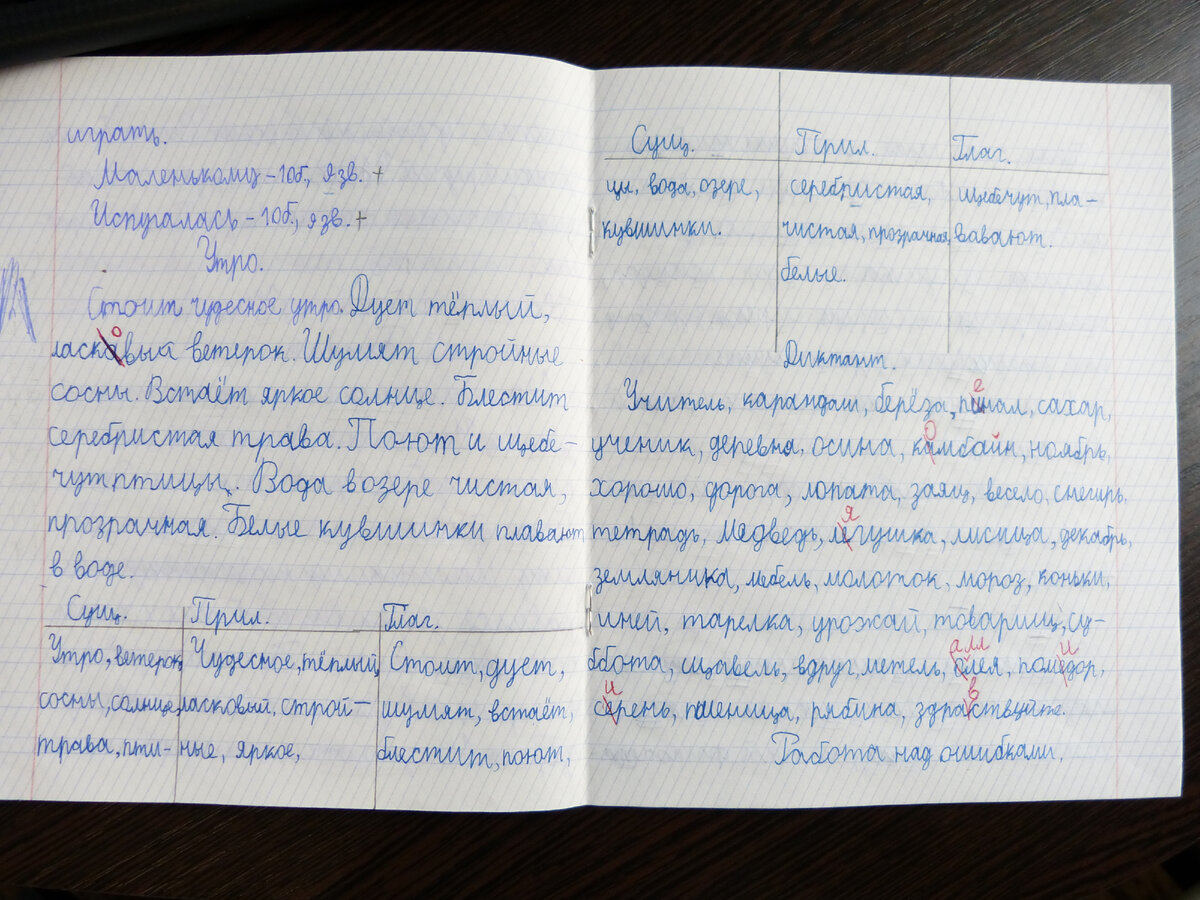 играть.
Маленькому – 10б., 9зв. +
Испугалась – 10б., 9зв. +
Утро.
Стоит чудесное утро. Дует тёплый,
о
ласкавый ветерок. Шумят стройные
сосны. Встаёт яркое солнце. Блестит
серебристая трава. Поют и щебе-
чут птицы. Вода в озере чистая,
прозрачная. Белые кувшинки плавают
в воде.
Сущ. Прил. Глаг.
Утро, ветерок, Чудесное, тёплый, Стоит, дует,
сосны, солнце, ласковый, строй- шумят, встаёт,
трава, пти- ные, яркое, блестит, поют,
Сущ. Прил. Глаг.
цы, вода, озере, серебристая, щебечут, пла-
кувшинки. чистая, прозрачная, вавают.
белые.
Диктант.
е
Учитель, карандаш, берёза, пинал, сахар,
о
ученик, деревня, осина, камбайн, ноябрь,
хорошо, дорога, лопата, заяц, весело, снегирь,
я
тетрадь, медведь, легушка, лисица, декабрь,
земляника, мебель, молоток, мороз, коньки,
иней, тарелка, урожай, товарищ, су-
алл и
ббота, щавель, вдруг, метель, олея, помедор,
и в
серень, пшеница, рябина, здракствуйте.
Работа над ошибками.